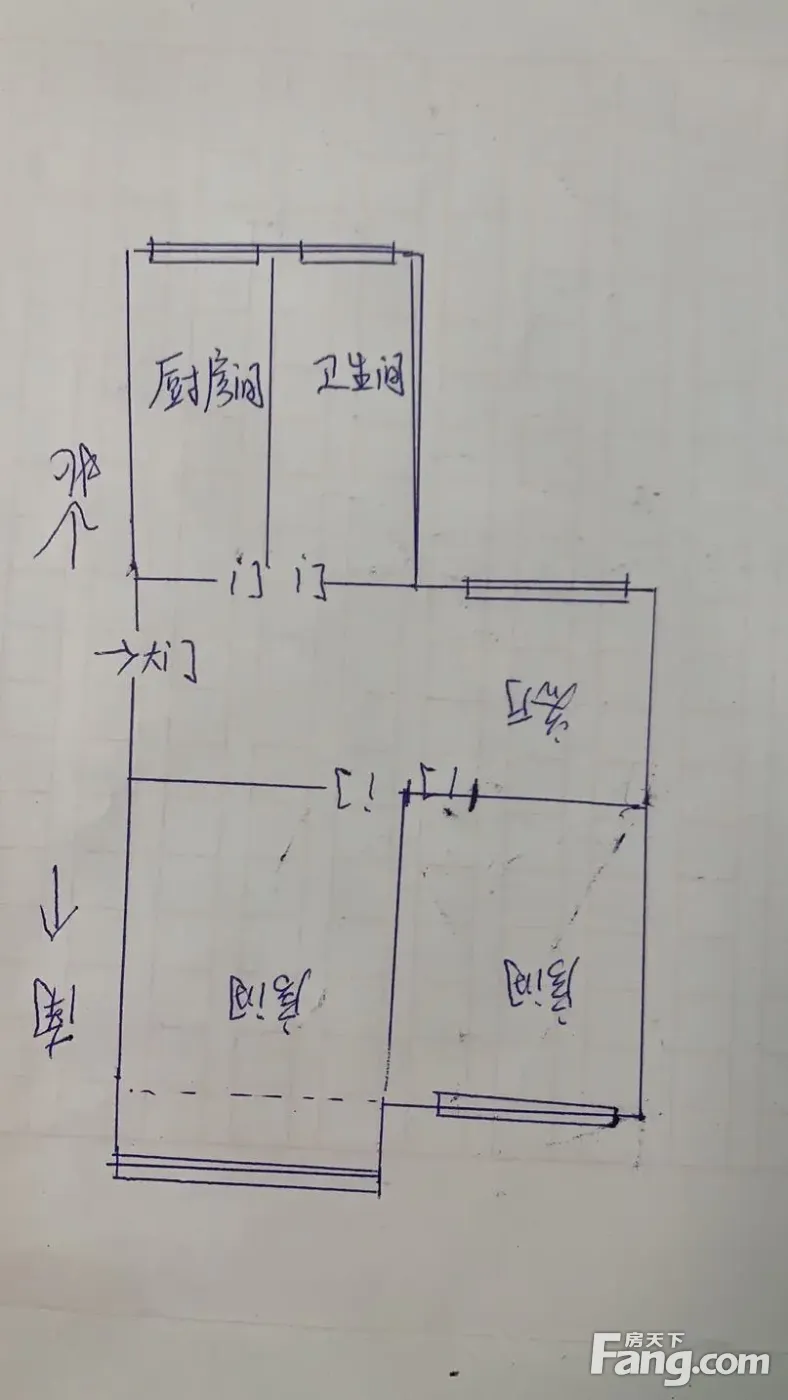 厨房间
卫生间
北
门
门
大门
客厅
门
门
房间
房间
南
房天下
Fang.com